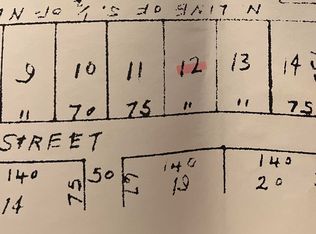 N LINE OF S. ½ OF N
9 10 11 12 13 14
" 70 75 " " 75
STREET
140 50 140 140
14 75 67 19 20